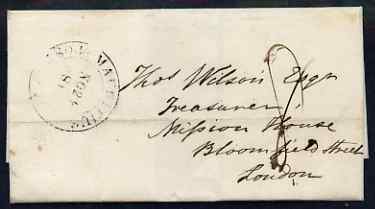 MAURITIUS
Thos Wilson Esqr
Treasurer
Mission House
Bloomfield Street
London